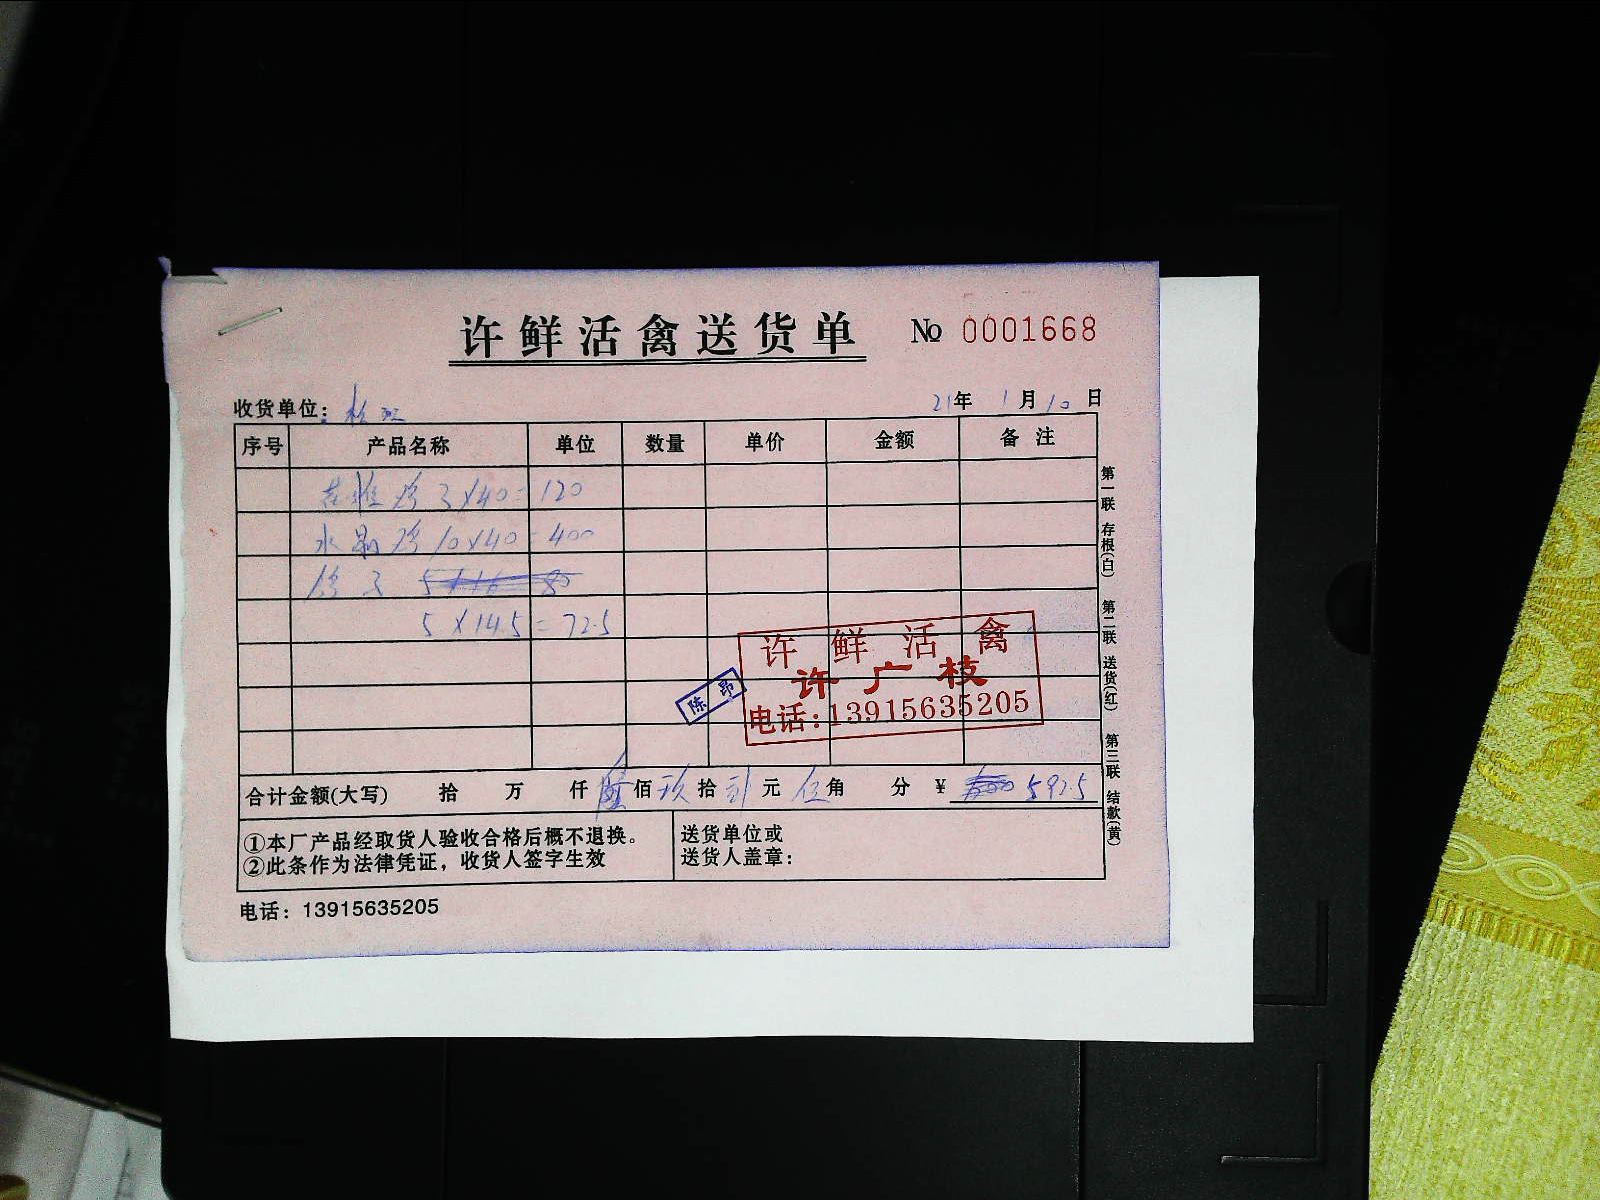 许鲜活禽送货单 № 0001668
收货单位: 21年 1月 10日
序号 产品名称 单位 数量 单价 金额 备注
3×40=120
水晶鸡 10×40=400
鸡子
5×14.5=72.5
许鲜活禽
许广枝
电话:13915635205
陈昂
合计金额(大写) 拾 万 仟 佰 玖 拾 贰 元 伍 角 分 ¥ 592.5
①本厂产品经取货人验收合格后概不退换。
②此条作为法律凭证，收货人签字生效
送货单位或
送货人盖章:
电话: 13915635205
第一联 存根(白) 第二联 送货(红) 第三联 结款(黄)